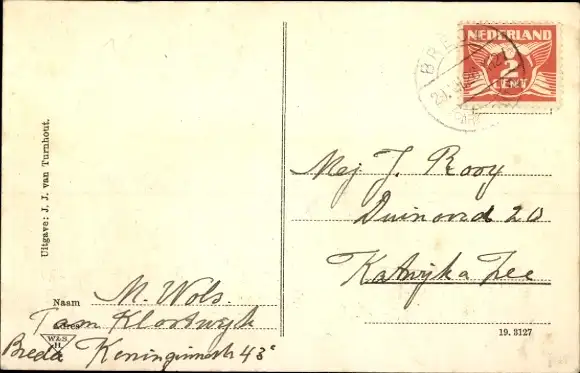 Uitgave: J. J. van Turnhout.
NEDERLAND
2
CENT
BRE
Mej J. Rooy
Duinoord 20
Katwijk a Zee
Naam M. Wols.
Adres Klootwijk
W&S
H
Breda Koninginnestr 43
19. 3127